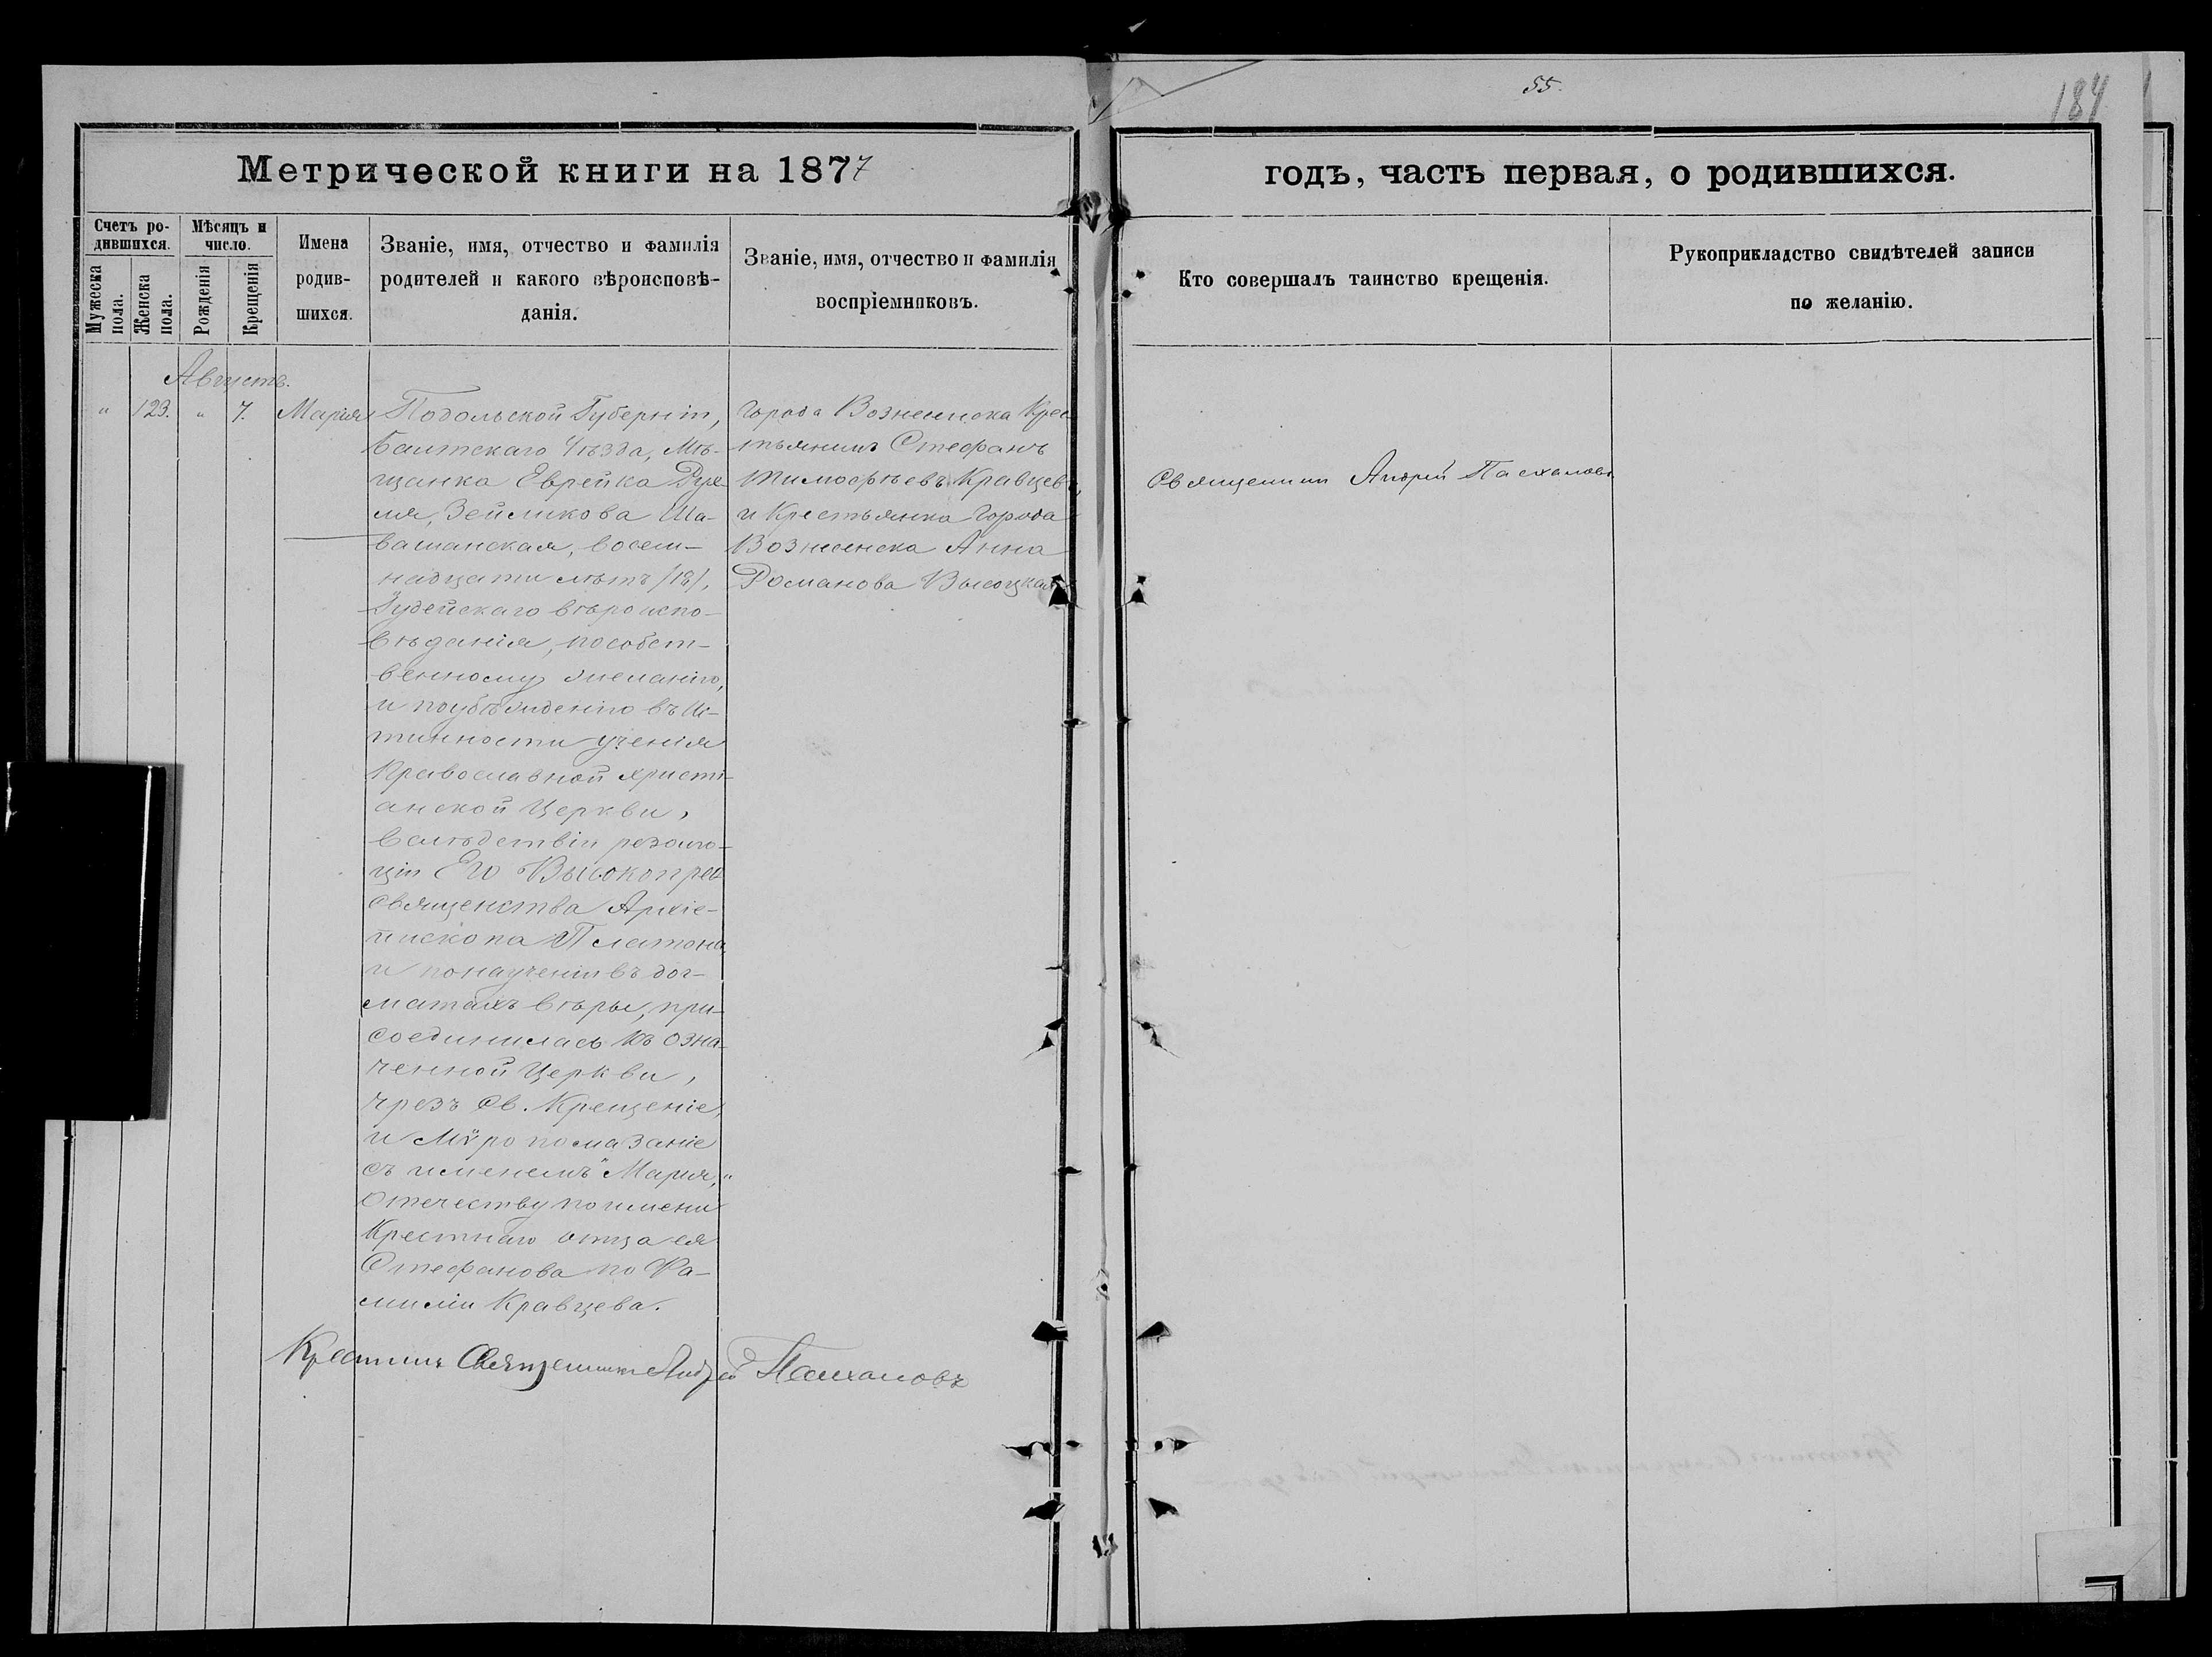 55.
184
Метрической книги на 1877
годъ, часть первая, о родившихся.
Счетъ родившихся.
Мужеска пола.
Женска пола.
Мѣсяцъ и число.
Рожденія
Крещенія
Имена
родив-
шихся.
Званіе, имя, отчество и фамилія
родителей и какого вѣроисповѣ-
данія.
Званіе, имя, отчество и фамилія
воспріемниковъ.
Кто совершалъ таинство крещенія.
Рукоприкладство свидѣтелей записи
по желанію.
Августъ.
" 123. " 7. Марія
Подольской Губерніи,
Балтскаго Уѣзда, Мѣ-
щанка Еврейка Рух-
ля, Зейликова Ша-
вашанская, восем-
надцати лѣтъ /18/,
Іудейскаго вѣроиспо-
вѣданія, по собст-
венному желанію,
и по убѣжденію въ Ис-
тинности ученія
Православной христі-
анской Церкви,
вслѣдствіи резолю-
ціи Его Высокопрео-
священства Архіе-
пископа Платона,
и по наученіи въ дог-
матахъ вѣры, при-
соединилась къ озна-
ченной Церкви,
чрезъ Св. Крещеніе,
и Мѵропомазаніе
съ именемъ "Марія,"
Отечеству по имени
Крестнаго отца ея
Стефанова по Фа-
миліи Кравцева.
Города Вознесенска Крес-
тьянинъ Стефанъ
Тимофѣевъ Кравцевъ,
и Крестьянка Города
Вознесенска Анна
Романова Высоцкая
Священникъ Андрей Пасхаловъ
Крестилъ Священникъ Андрей Пасхаловъ